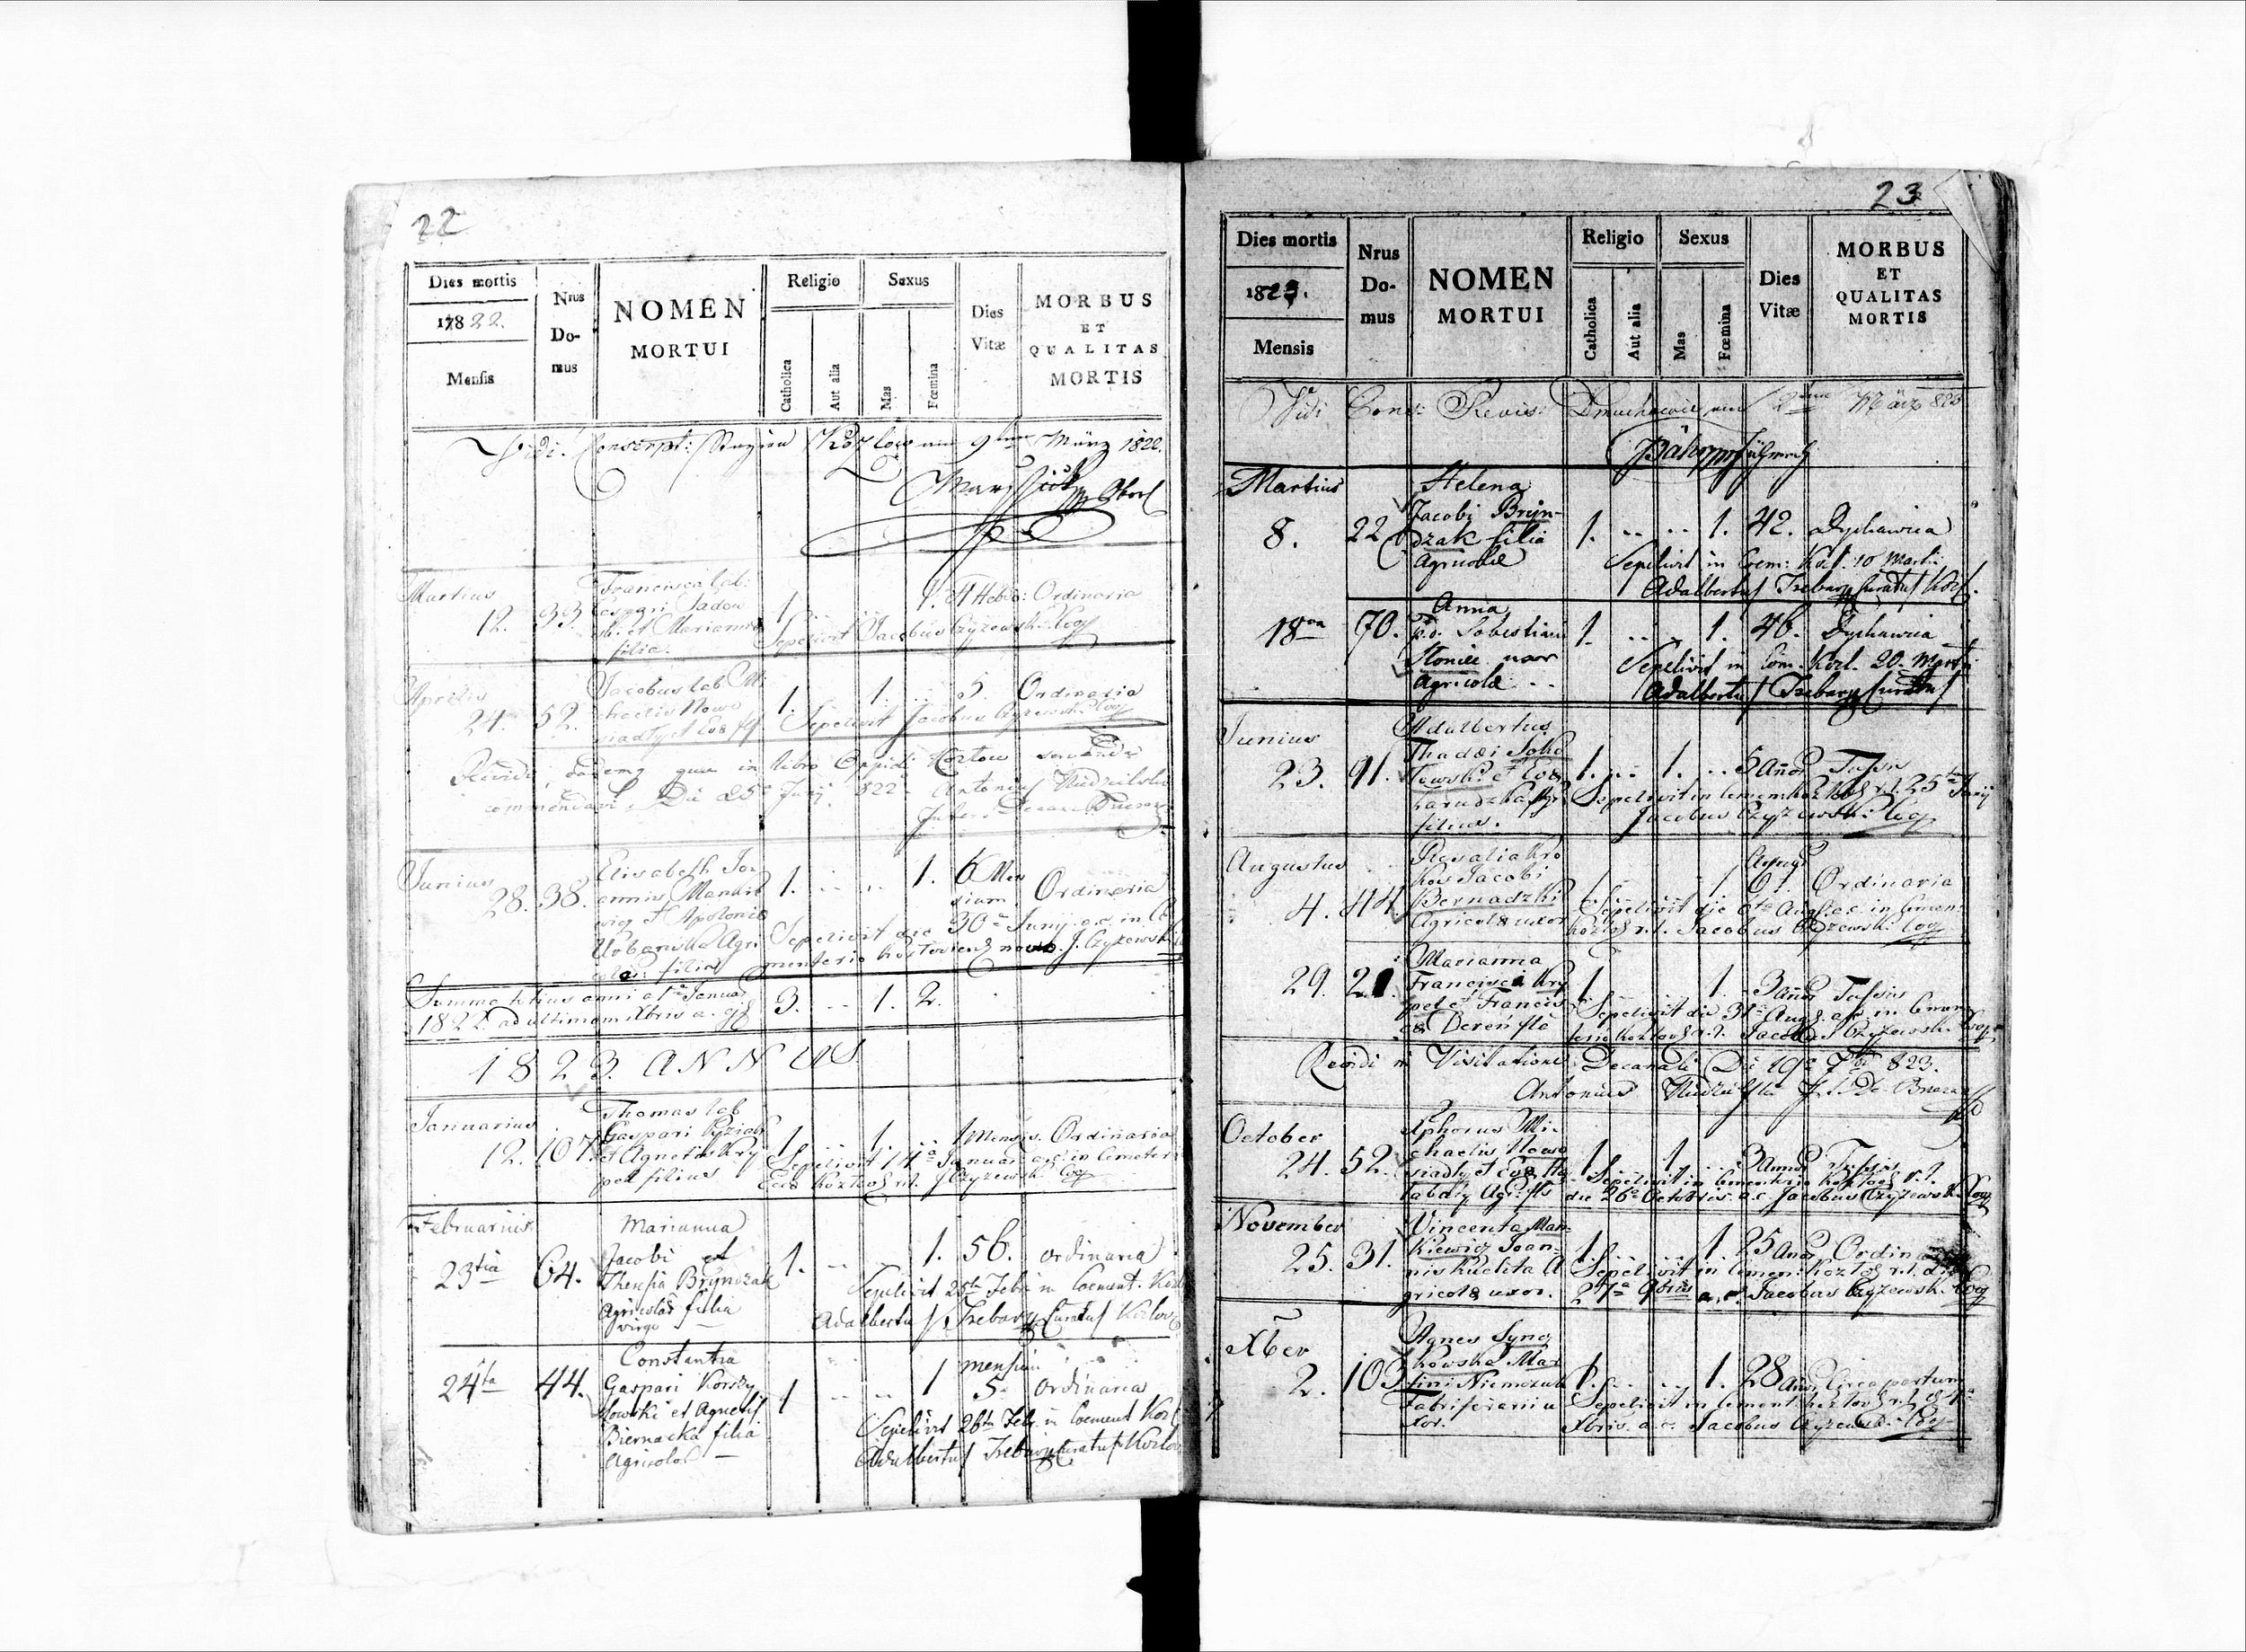 22
Dies mortis
1822.
Mensis
Nrus
Do-
mus
NOMEN
MORTUI
Religio
Catholica
Aut alia
Sexus
Mas
Fœmina
Dies
Vitæ
MORBUS
ET
QUALITAS
MORTIS
Vidi. Conscript: Kozlow am 9ten März 1822.
Martius
12. 33.
Francisca lab:
Caspari Sadow
ski et Marianna
filia.
1. .. .. 1. Hebdo: Ordinaria
Sepelivit Jacobus Czyzewski Coop
Aprilis
24. 52.
Jacobus lab Mi
chaelis Nowo
siadly et Eva
1. 1. .. 5. Ordinaria
Sepelivit Jacobus Czyzewski Coop
in libro Oppidi Kozlow
commendavi. Die 25 Junij 822 Antonius
Junius
28. 38.
Elisabeth Jo
annis Mankie
wicz et Apolonia
Urbanska Agri
colae filia
1. .. .. 1. 6 Men
sium Ordinaria
Sepelivit die 30a Junij a.c. in Ce
menterio Kozloviens J. Czyzewski
Summa totius anni a 1a Januar
1822. ad ultimam Xbris a.
3. .. 1. 2.
1823. ANNUS
Januarius
12. 107.
Thomas lab
Gaspari
et Agnetis Kry
pel filius
1. .. 1. .. 1 Mensis. Ordinaria
Sepelivit 14a Januar a.c. in Cemeter
J Czyzewski Coop
Februarius
23tia 64.
Marianna
Jacobi et
Thensia Bryndzak
Agricolae filia
virgo
1. .. .. 1. 56. ordinaria
Sepelivit 25ta Febr in Coement. Kozl
Adalbertus Trebary Curatus Kozlov
24ta 44.
Constantia
Gaspari
et Agnetis
Biernacka filia
Agricolae
1 .. .. 1 mensium
5. ordinaria
Sepelivit 26ta Febr in Coement Kozl
Adalbertus Trebary Curatus Kozlov
23
Dies mortis
1823.
Mensis
Nrus
Do-
mus
NOMEN
MORTUI
Religio
Catholica
Aut alia
Sexus
Mas
Fœmina
Dies
Vitæ
MORBUS
ET
QUALITAS
MORTIS
Vidi Cons: Revis: März 823
Martius
8. 22
Helena
Jacobi Bryn-
dzak filia
Agricolae
1. .. .. 1. 42. Dychawica
Sepelivit in Coem: Kozl. 10 Martii
Adalbertus Trebary Curatus Kozl.
18va 70.
Anna
p.d. Sobestiani
Sloniec uxor
Agricolae ..
1. .. . 1. 46. Dychawica
Sepelivit in Cöm. Kozl. 20. Martii
Adalbertus Trebary Curatus
Junius
23. 91.
Adalbertus
Thadæi Soko
lowski et Eva
filius.
1. .. 1. .. 5 Anor Tussis
Sepelivit in Cemen Kozlov r.l. 25ta Junij
Jacobus Czyzewski Coop
Augustus
4. 44
Rosalia Kro
kos Jacobi
Bernadzki
Agricolae uxor
1. .. 1 Anor
61. Ordinaria
Sepelivit die 6ta Aug. a.c. in Cemen
Kozlov r.l. Jacobus Czyzewski Coop
29. 21.
Marianna
Francisci Kry
pel et Francis
ca Deren fla
1 1. 3 anor Tussis
Sepelivit die 31a Aug. a.c. in Cemen
terio Kozlov r.l. Jacobus Czyzewski Coop
Revidi in Visitatione Decanali Die 19a 7bris 823.
Antonius
October
24. 52.
Xphorus Mi-
chaelis Nowo
siadly et Eva Ha
Agr. fls
1. 1. .. 3 Annor Tussis
Sepelivit in Cementerio Kozlov r.l.
die 26a Octobris a.c. Jacobus Czyzewski Coop
November
25. 31.
Vincenta Man-
kiewicz Joan-
nis Kuchta A
gricolae uxor.
1. .. .. 1. 25 Anor Ordinaria
Sepelivit in Cemen: Kozlov r.l. die
27a 9bris a.c. Jacobus Czyzewski Coop
Xber
2. 103
Agnes Syno
kowska Mar
tini Niemczuk
Fabri ferarii u
xor.
1. .. .. 1. 28 Anor Circa partum
Sepelivit in Cement Kozlov r.l. d 4a
Xbris. a.c. Jacobus Czyzewski Coop